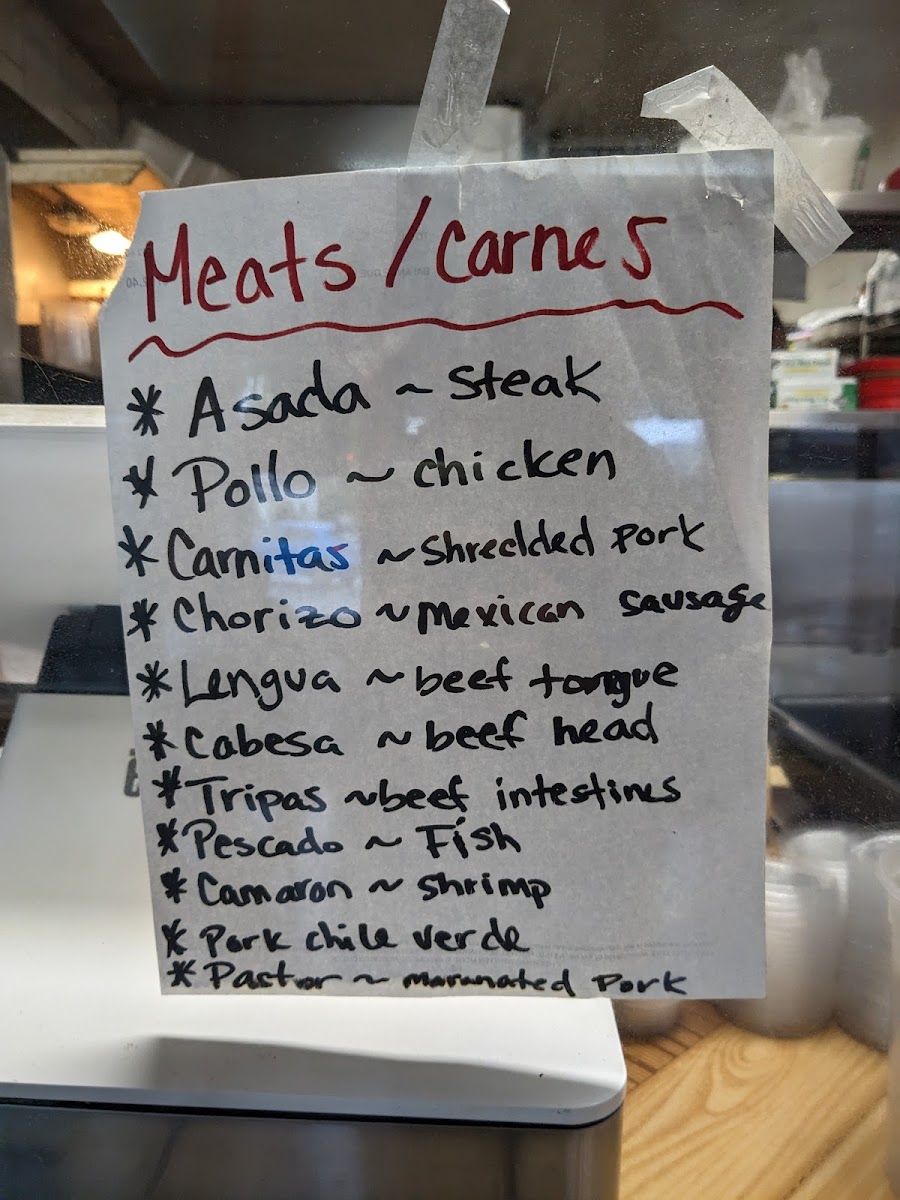 Meats / Carnes
* Asada ~ Steak
* Pollo ~ chicken
* Carnitas ~ Shredded Pork
* Chorizo ~ Mexican Sausage
* Lengua ~ beef tongue
* Cabesa ~ beef head
* Tripas ~ beef intestines
* Pescado ~ Fish
* Camaron ~ Shrimp
* Pork chile verde
* Pastor ~ marunated Pork